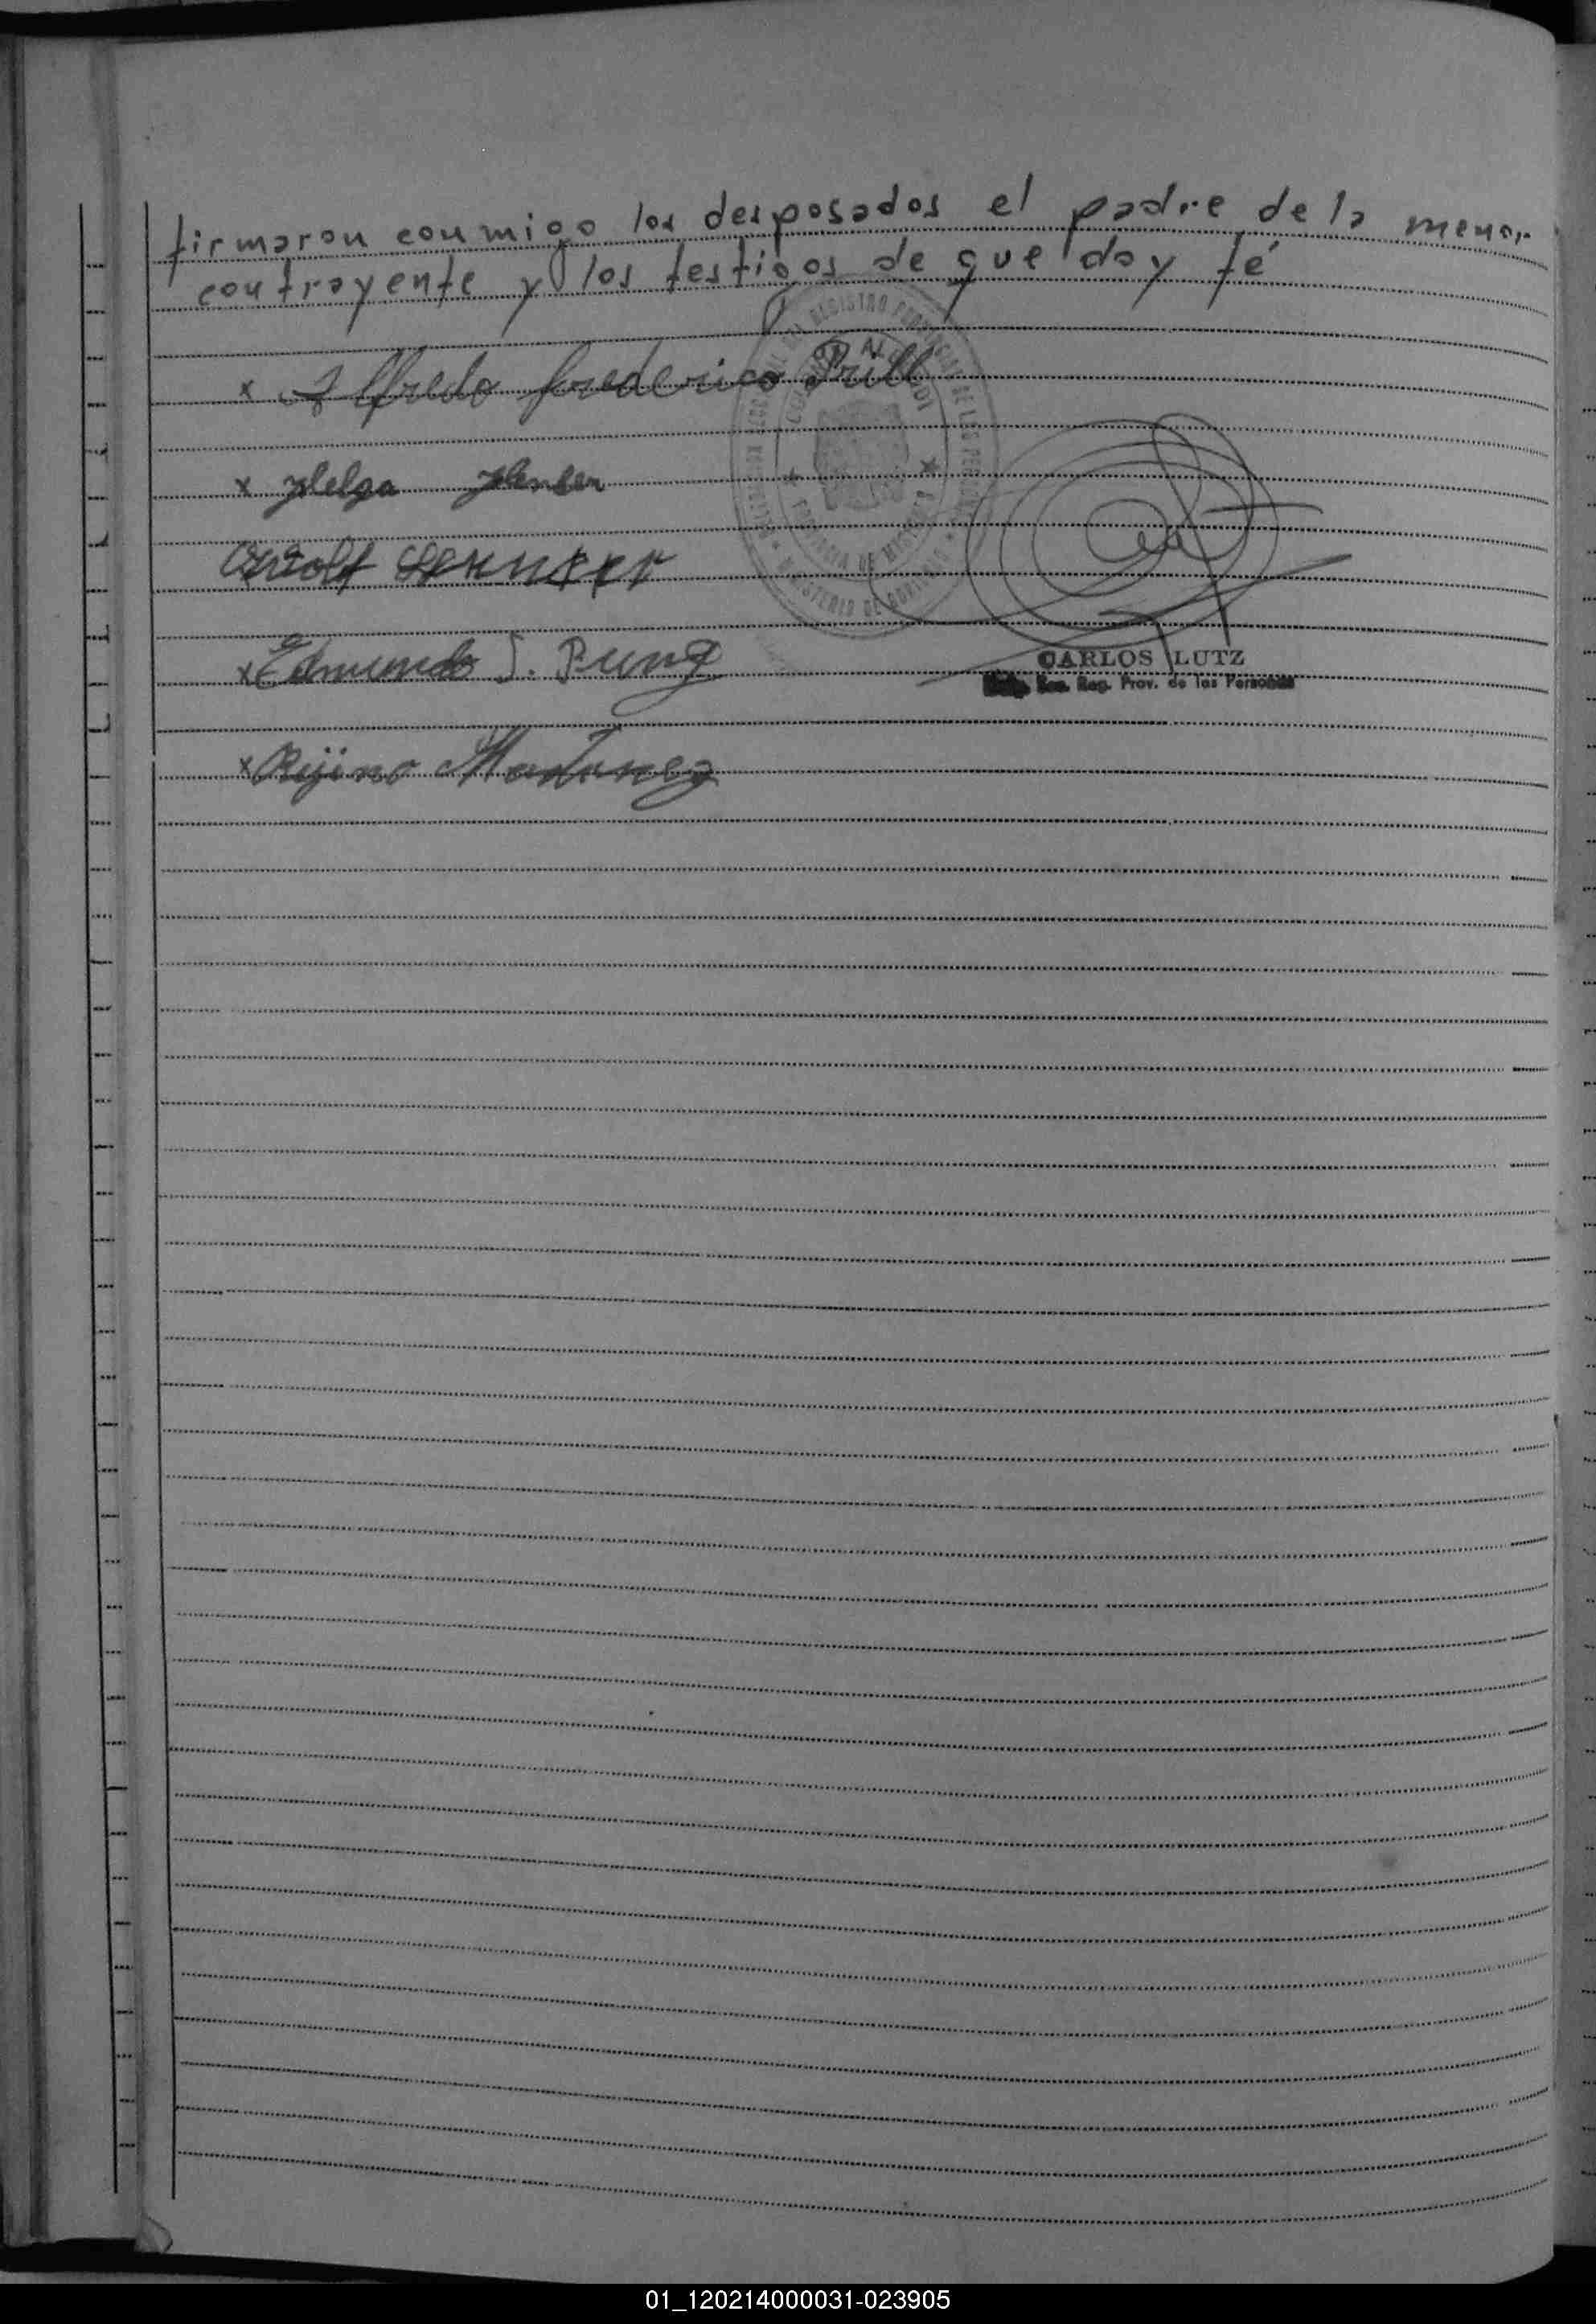 firmaron conmigo los desposados el padre de la menor
contrayente y los testigos de que doy fé
x Alfredo Frederico Prill
x Helga
Adolf
x Edmundo
x Rijino Martinez
CARLOS LUTZ
Reg. Prov. de las Personas
REGISTRO PROVINCIAL DE LAS PERSONAS
PROVINCIA DE MISIONES
MINISTERIO DE GOBIERNO
01_120214000031-023905